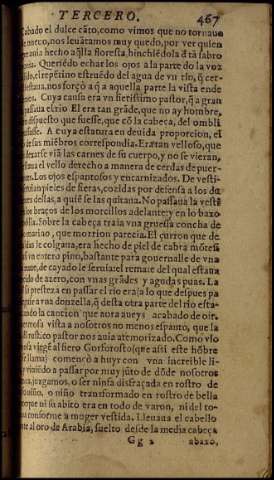 TERCERO. 467
cabado el dulce cāto, como vimos que no tornaua
nos leuātamos muy quedo, por ver quien
auia hecho aqlla floresta, hinchiēdola d tā sabro
Queriēdo echar los ojos a la parte do la voz
el repētino estruēdo del agua de vn rio, q̄ cer-
estaua, nos forço a q̄ a aquella parte la vista ende
Cuya causa era vn fierissimo pastor, q̄ a gran
el rio. El era tan grāde, que no ay hombre,
dispuesto que fuesse, que cō la cabeça, del ombli
A cuya estatura en deuida proporcion, el
miembros correspondia. Era tan velloso, que
las carnes de su cuerpo, y no se vieran,
el vello derecho a manera de cerdas de puer-
Los ojos espantosos y encarnizados. De vesti-
pieles de fieras, cozidas por defensa a los do
dellas, a quiē se las quitana. No passaua la vesti
braços de los morcillos adelante: y en lo baxo
Sobre la cabeça traia vna gruessa concha de
marino, que morrion parecia. El çurron que de
le colgana, era hecho de piel de cabra mōtesa
vn entero pino, bastante para gouernalle de vna
de cayado le seruia: el remate del qual estaua
de azero, con vnas grādes y agudas puas. La
pressteza en passar el rio era, a lo que despues pa
vna donzella, q̄ desta otra parte del rio esta-
la cancion que aora aueys acabado de oir.
vista a nosotros no menos espanto, que la
rustico pastor nos auia atemorizado. Como vio
al fiero Gorforosto (que assi este hōbre
llama) començo a huyr con vna increible li-
a passar por muy jūto de dōde nosotros
juzgamos, o ser ninfa disfraçada en rostro de
o niño transformado en rostro de bella
su abito era en todo de varon, ni del to-
conforme a moger vestida. Lleuaua el cabello
al oro de Arabia, suelto desde la media cabeça
Gg 2 abaxo,